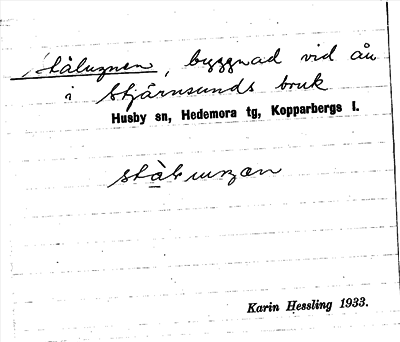 Stålugnen, byggnad vid ån
i Stjärnsunds bruk
Husby sn, Hedemora tg, Kopparbergs l.
Karin Hessling 1933.